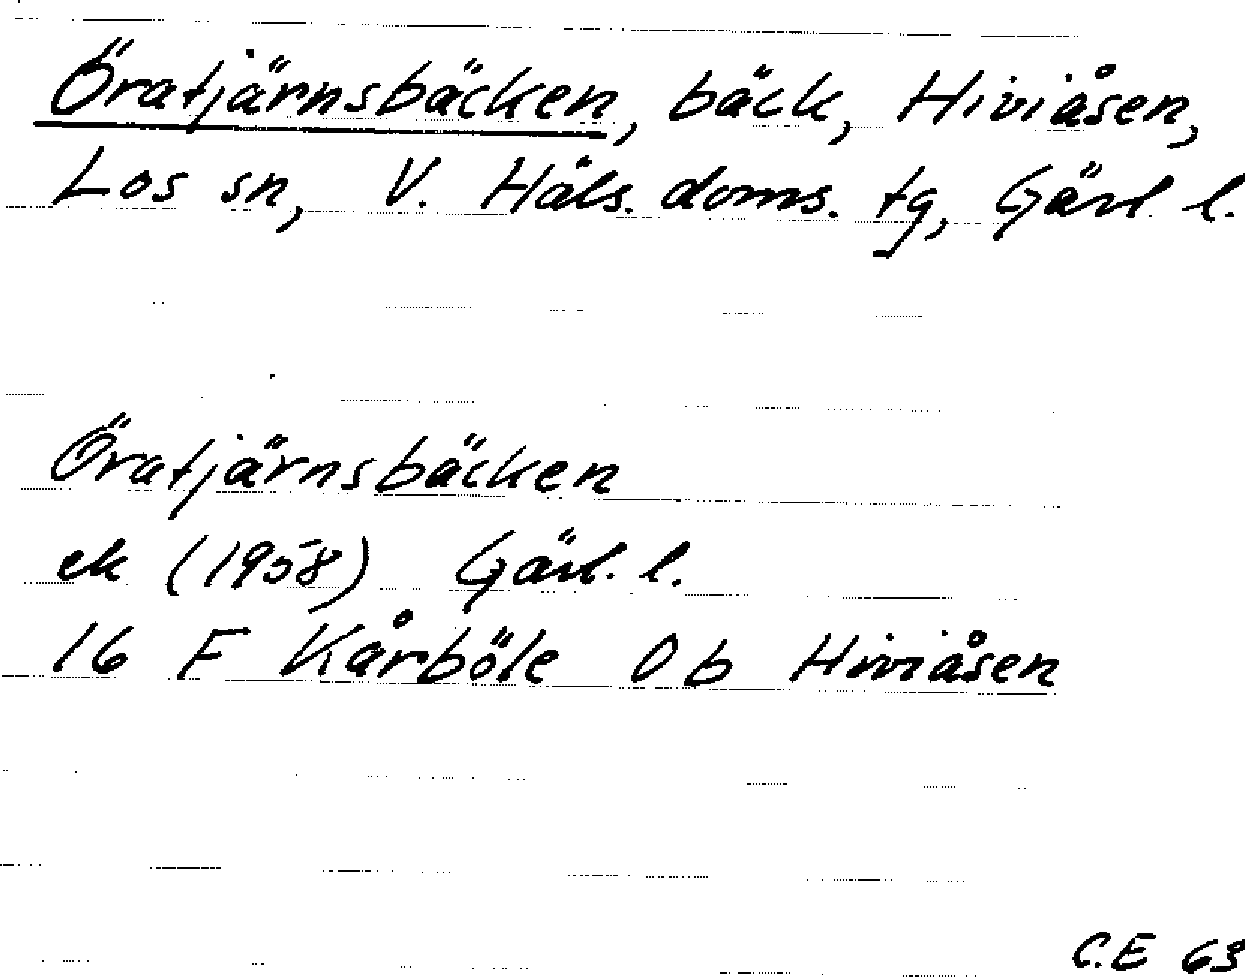 Öratjärnsbäcken, bäck, Hiviåsen,
Los sn, V. Häls. doms. tg, Gävl. l.
Öratjärnsbäcken
ek (1958) Gävl. l.
16 F Kårböle 0 b Hiviåsen
C.E 63